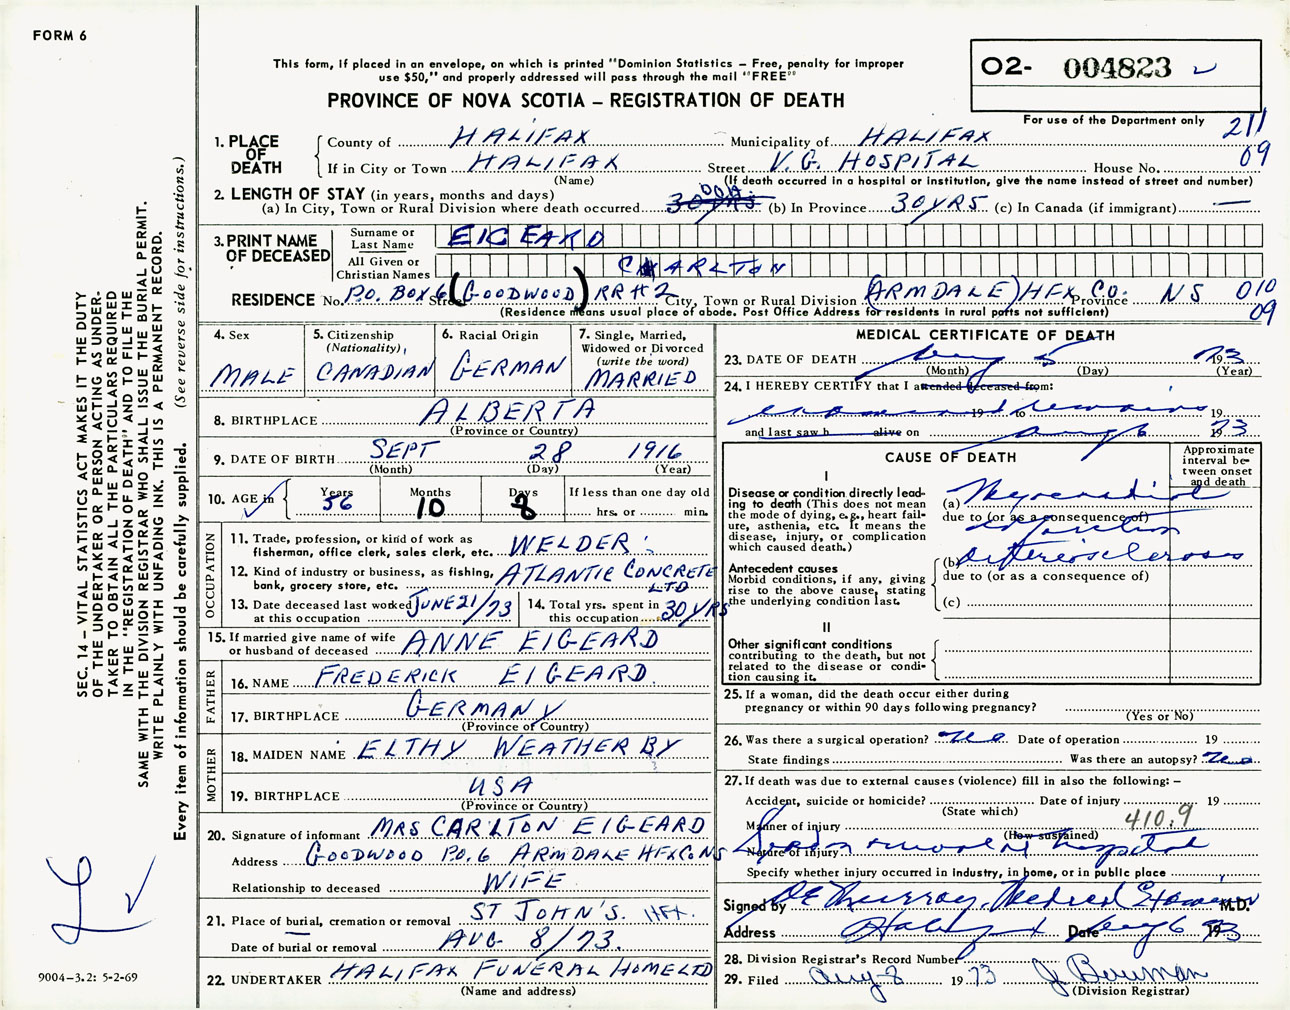 FORM 6
This form, if placed in an envelope, on which is printed "Dominion Statistics – Free, penalty for improper
use $50," and properly addressed will pass through the mail "FREE"
PROVINCE OF NOVA SCOTIA – REGISTRATION OF DEATH
O2- 004823
For use of the Department only 211
09
1. PLACE OF DEATH County of HALIFAX Municipality of HALIFAX
If in City or Town HALIFAX Street V.G. HOSPITAL House No.
(Name) (If death occurred in a hospital or institution, give the name instead of street and number)
2. LENGTH OF STAY (in years, months and days)
(a) In City, Town or Rural Division where death occurred 30 YRS DOA (b) In Province 30 YRS (c) In Canada (if immigrant) —
3. PRINT NAME OF DECEASED
Surname or Last Name EIGEARD
All Given or Christian Names CARLTON
RESIDENCE No. P.O. BOX 6 Street (GOODWOOD) RR#2 City, Town or Rural Division (ARMDALE) HFX CO. Province NS 010
09
(Residence means usual place of abode. Post Office Address for residents in rural parts not sufficient)
4. Sex MALE
5. Citizenship (Nationality) CANADIAN
6. Racial Origin GERMAN
7. Single, Married, Widowed or Divorced (write the word) MARRIED
8. BIRTHPLACE ALBERTA
(Province or Country)
9. DATE OF BIRTH SEPT 28 1916
(Month) (Day) (Year)
10. AGE in Years 56 Months 10 Days 8 If less than one day old
hrs. or min.
OCCUPATION
11. Trade, profession, or kind of work as
fisherman, office clerk, sales clerk, etc. WELDER
12. Kind of industry or business, as fishing,
bank, grocery store, etc. ATLANTIC CONCRETE LTD
13. Date deceased last worked at this occupation JUNE 21/73
14. Total yrs. spent in this occupation 30 YRS
15. If married give name of wife
or husband of deceased ANNE EIGEARD
FATHER
16. NAME FREDERICK EIGEARD
17. BIRTHPLACE GERMANY
(Province of Country)
MOTHER
18. MAIDEN NAME ELTHY WEATHERBY
19. BIRTHPLACE USA
(Province or Country)
20. Signature of informant MRS CARLTON EIGEARD
Address GOODWOOD P.O. 6 ARMDALE HFX CO NS
Relationship to deceased WIFE
21. Place of burial, cremation or removal ST JOHN'S. HFX.
Date of burial or removal AUG 8/73.
22. UNDERTAKER HALIFAX FUNERAL HOME LTD
(Name and address)
MEDICAL CERTIFICATE OF DEATH
23. DATE OF DEATH Aug 5 1973
(Month) (Day) (Year)
24. I HEREBY CERTIFY that I attended deceased from:
examined remains 19 to 19
and last saw h alive on Aug 6 1973
CAUSE OF DEATH
Approximate interval between onset and death
I
Disease or condition directly leading to death (This does not mean the mode of dying, e.g., heart failure, asthenia, etc. It means the disease, injury, or complication which caused death.)
(a) Myocardial
due to (or as a consequence of)
infarction
(b) Arteriosclerosis
due to (or as a consequence of)
(c)
Antecedent causes
Morbid conditions, if any, giving rise to the above cause, stating the underlying condition last.
II
Other significant conditions
contributing to the death, but not related to the disease or condition causing it.
25. If a woman, did the death occur either during
pregnancy or within 90 days following pregnancy?
(Yes or No)
26. Was there a surgical operation? No Date of operation 19
State findings Was there an autopsy? No
27. If death was due to external causes (violence) fill in also the following: –
Accident, suicide or homicide? Date of injury 19
(State which)
Manner of injury 410.9
(How sustained)
Nature of injury Dead on arrival at hospital
Specify whether injury occurred in industry, in home, or in public place
Signed by Murray, Medical Examiner M.D.
Address Halifax Date Aug 6 1973
28. Division Registrar's Record Number
29. Filed Aug 8 1973 J Bowman
(Division Registrar)
SEC. 14 – VITAL STATISTICS ACT MAKES IT THE DUTY
OF THE UNDERTAKER OR PERSON ACTING AS UNDER-
TAKER TO OBTAIN ALL THE PARTICULARS REQUIRED
IN THE "REGISTRATION OF DEATH" AND TO FILE THE
SAME WITH THE DIVISION REGISTRAR WHO SHALL ISSUE THE BURIAL PERMIT.
WRITE PLAINLY WITH UNFADING INK. THIS IS A PERMANENT RECORD.
Every item of information should be carefully supplied. (See reverse side for instructions.)
L
9004–3.2: 5-2-69